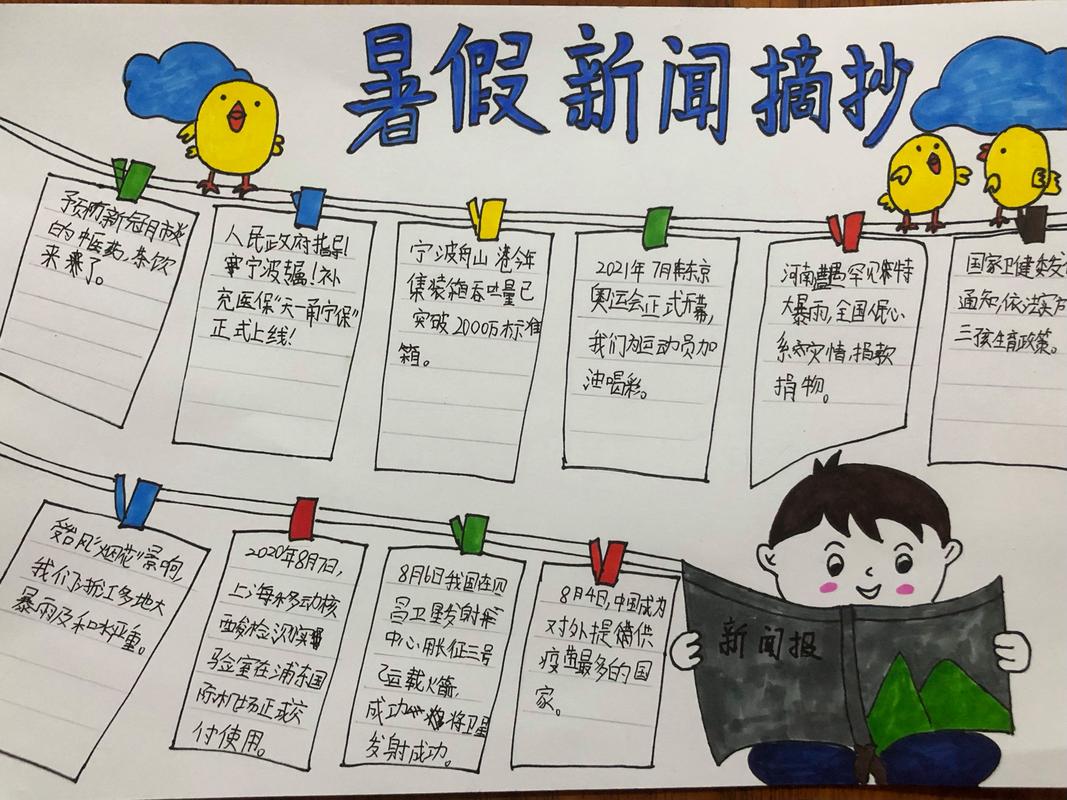 暑假新闻摘抄
予防新冠
的中医药茶饮
来来了。
人民政府指导!
宁波专属!补
充医保"天一甬宁保"
正式上线!
宁波舟山港今年
集装箱吞吐量已
突破2000万标准
箱。
2021年7月东京
奥运会正式开幕,
我们为运动员加
油喝彩。
河南遭遇罕见特
大暴雨,全国人民心
系灾情,捐款
捐物。
国家卫健委发
通知,依法实方
三孩生育政策。
受台风"烟花"影响,
我们浙江多地大
暴雨及积水严重。
2020年8月7日,
上海移动核
酸检测实
验室在浦东国
际机场正式交
付使用。
8月6日我国在西
昌卫星发射
中心用长征三号
乙运载火箭,
成功将卫星
发射成功。
8月4日,中国成为
对外提供
疫苗最多的国
家。
新闻报